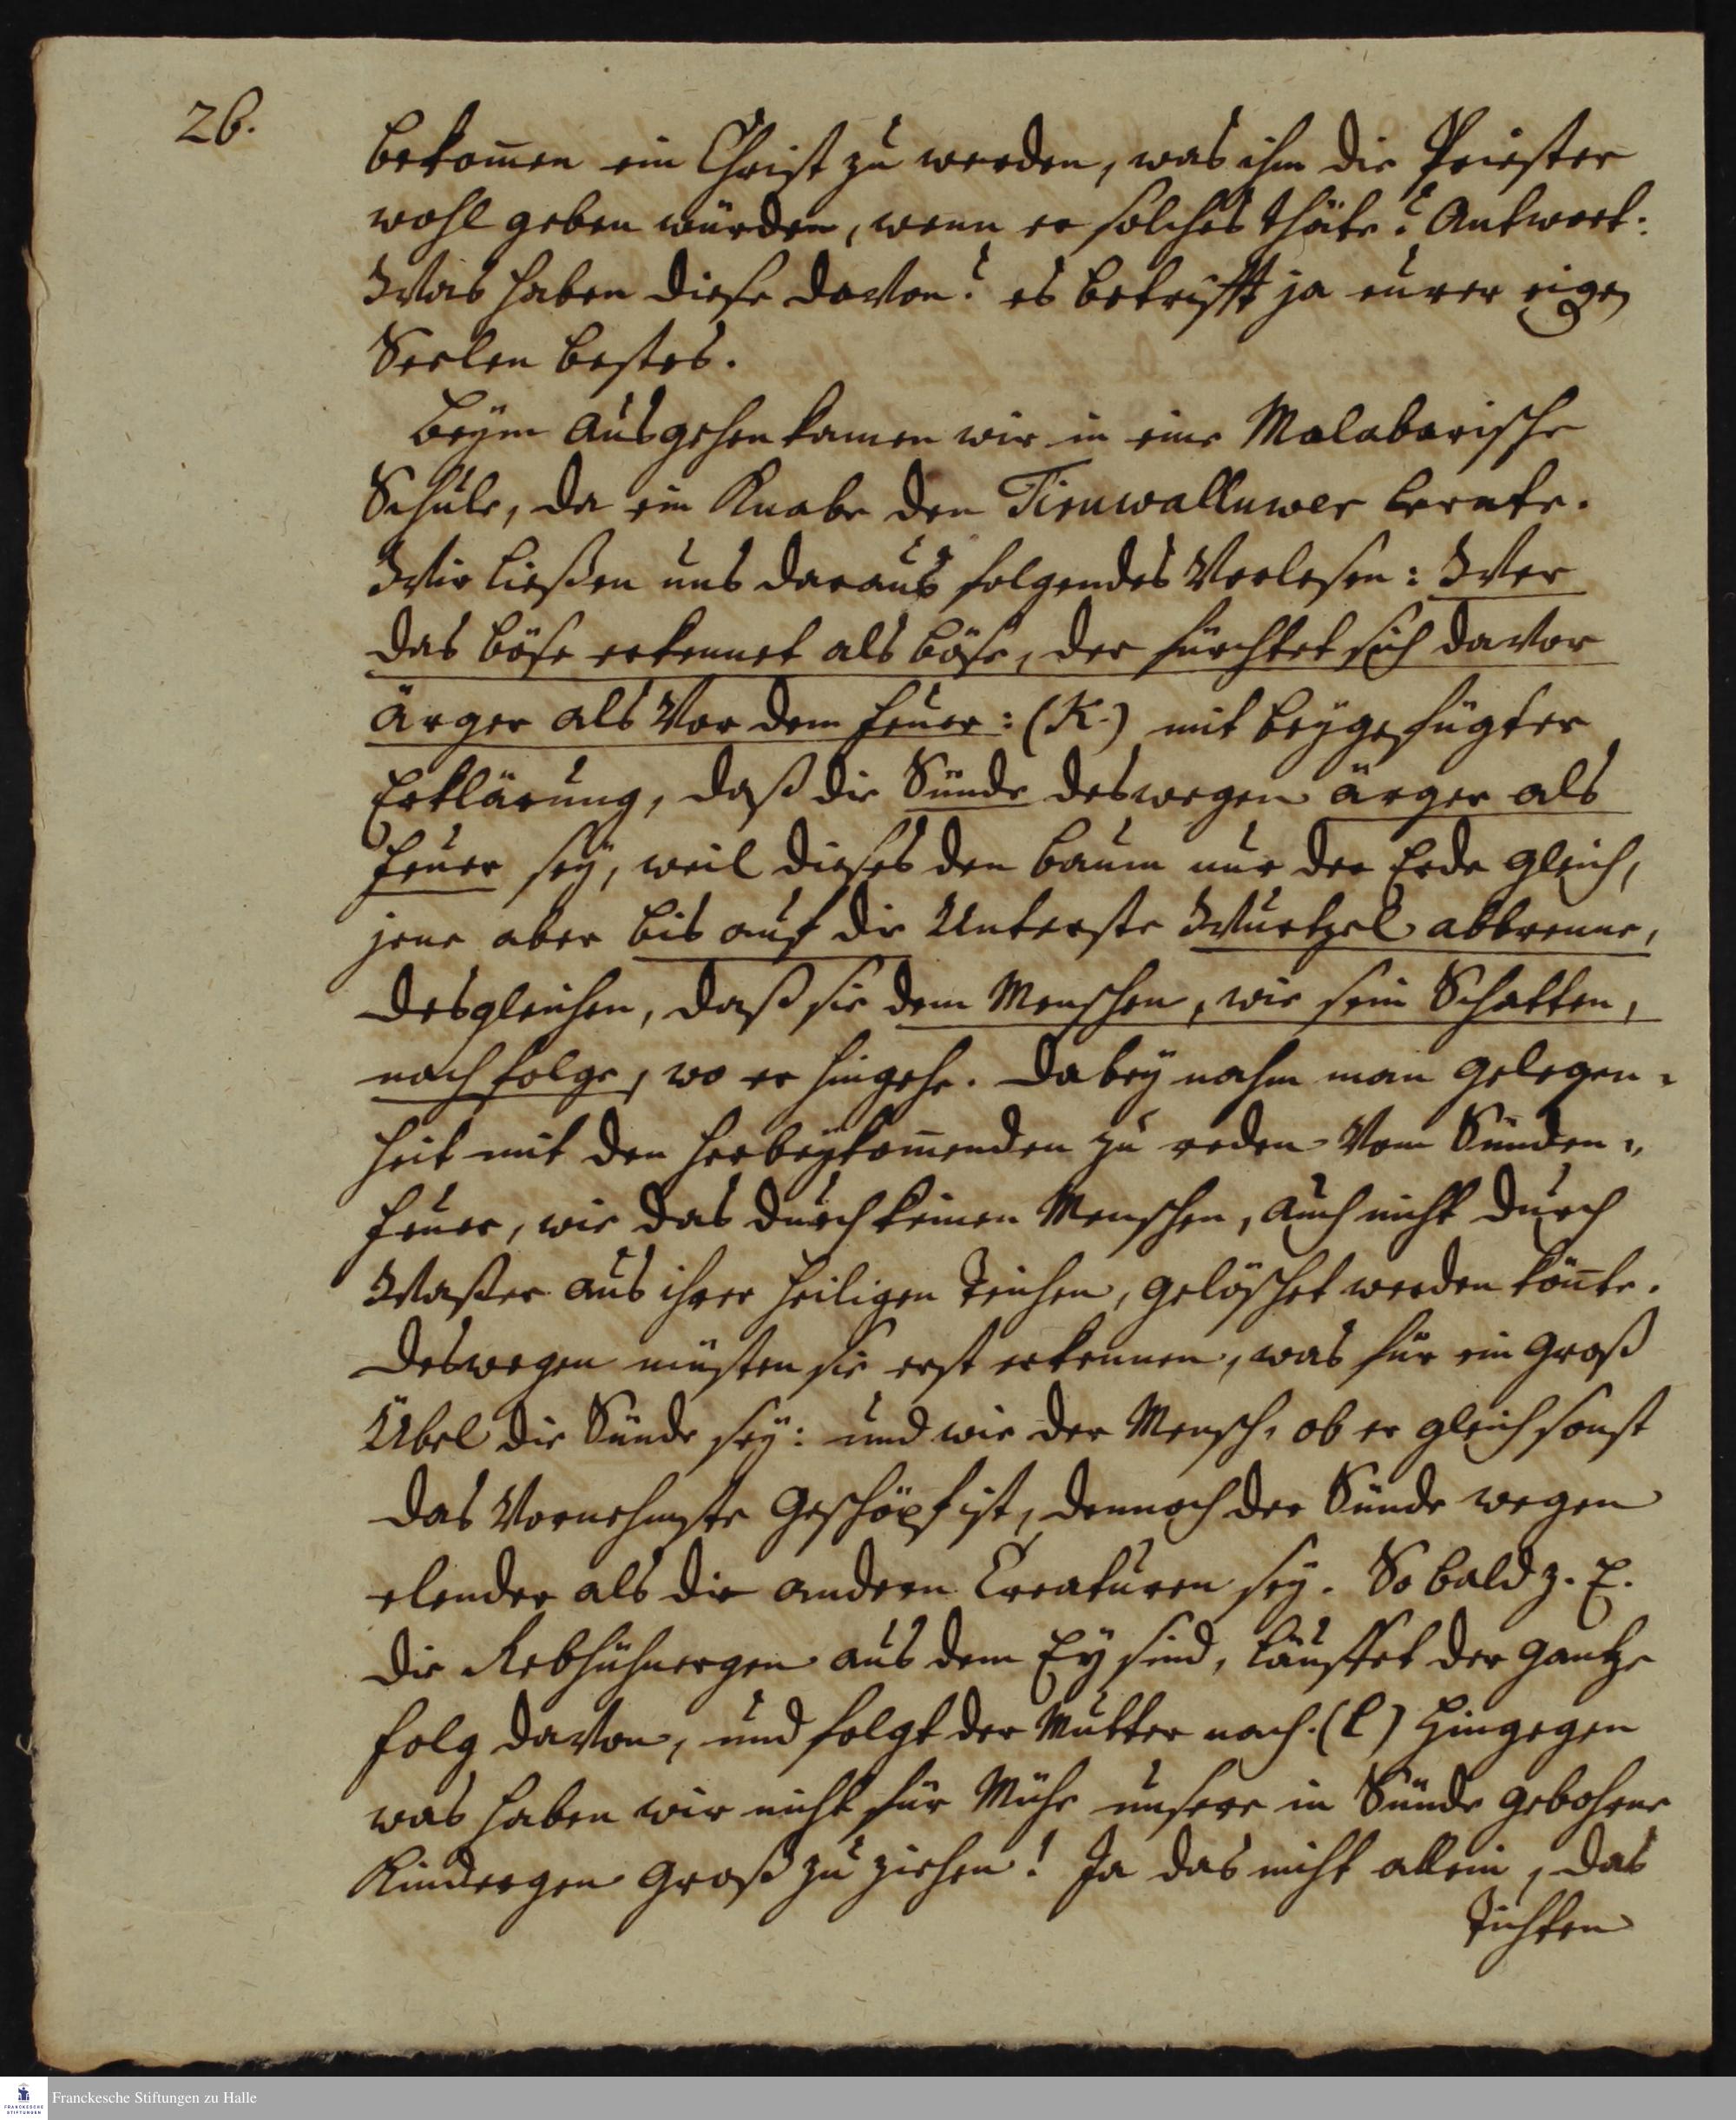 26.
bekom̄en ein Christ zu werden, was ihm die Priester
wohl geben würden, wenn er solches thäte? Antwort:
Was haben diese davon? es betrifft ja eurer eigen
Seelen bestes.
Beym Ausgehen kamen wir in eine Malabarische
Schule, da ein Knabe den Tiruwalluwer lernte.
Wir ließen uns daraus folgendes Vorlesen: Wer
das böse erkennet als böse, der fürchtet sich davor
ärger als Vor dem Feuer: (K.) mit beygefügter
Erklärung, daß die Sünde deswegen ärger als
Feuer sey, weil dieses den Baum nur der Erde gleich,
jene aber bis auf die Unterste Wurtzel abbrenne,
desgleichen, daß sie dem Menschen, wie sein Schatten,
nachfolge, wo er hingehe. Dabey nahm man Gelegen-
heit mit den herbeykom̄enden zu reden Vom Sünden-
Feuer, wie das durch keinen Menschen, auch nicht durch
Waßer aus ihrer heiligen Teichen, gelöschet werden kön̄te.
Deswegen müsten sie erst erkennen, was für ein Groß
Übel die Sünde sey: und wie der Mensch, ob er gleich sonst
das Vornehmste Geschöpf ist, dennoch der Sünde wegen
elender als die andern Creaturen sey. So bald z. E.
die Rebhühnergen aus dem Ey sind, läuffet der Gantze
folg davon, und folgt der Mutter nach. (l) Hingegen
was haben wir nicht für Mühe unsere in Sünde gebohrne
Kindergen Groß zu ziehen! Ja das nicht allein, das
Tichten
Franckesche Stiftungen zu Halle
FRANCKESCHE
STIFTUNGEN